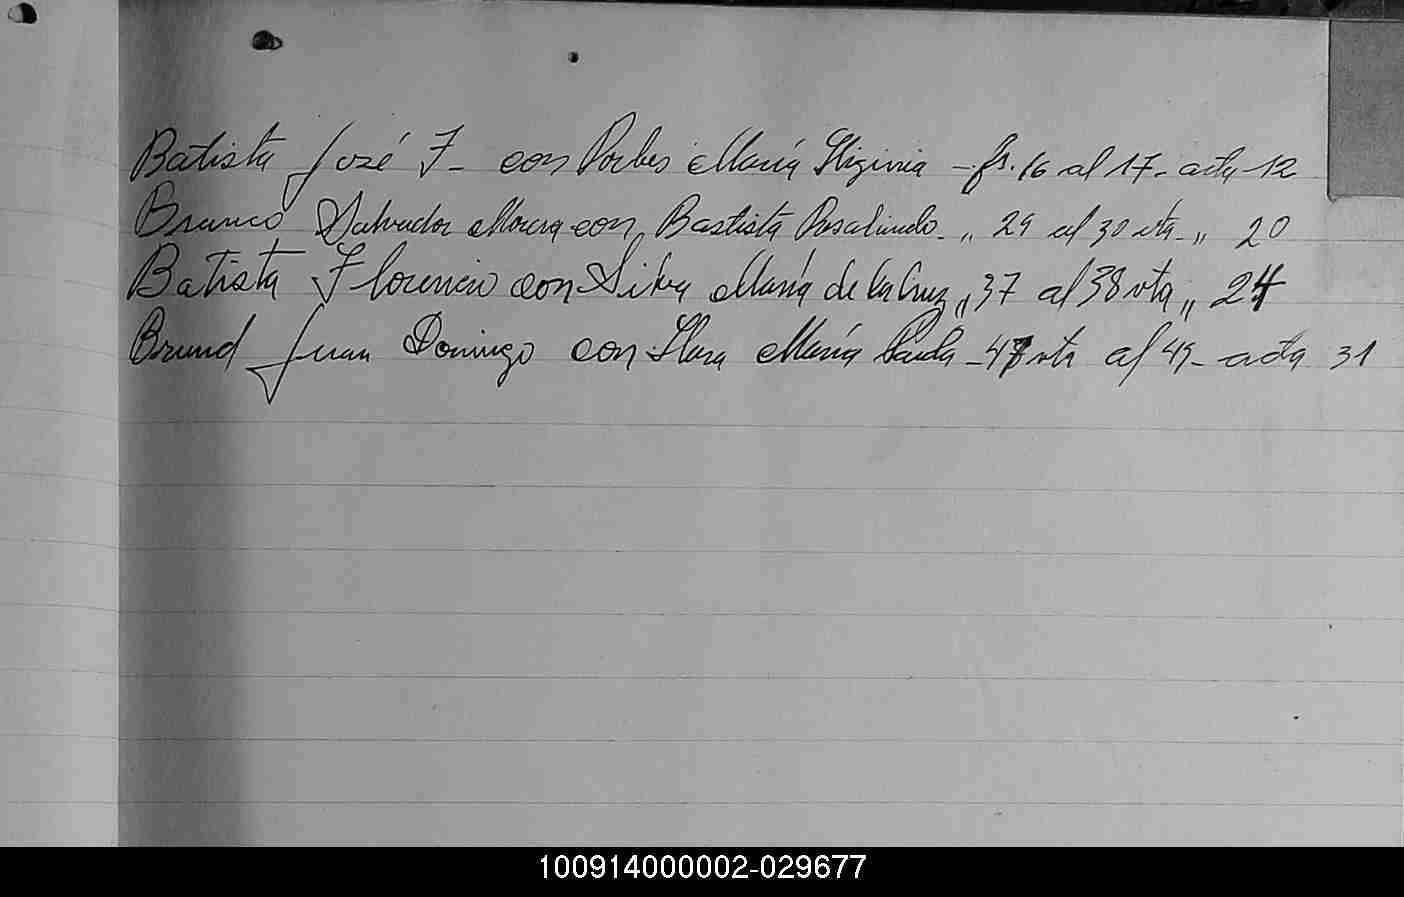 Batista José F- con Maria Higinia - fs. 16 al 17- acta 12
Branco Salvador Moura con Bastista Rosalindo - ,, 29 al 30 vta - ,, 20
Batista Florencio con Silva María de la Cruz ,, 37 al 38 vta ,, 24
Brund Juan Domingo con María Paula - 47 vta al 49 - acta 31
100914000002-029677